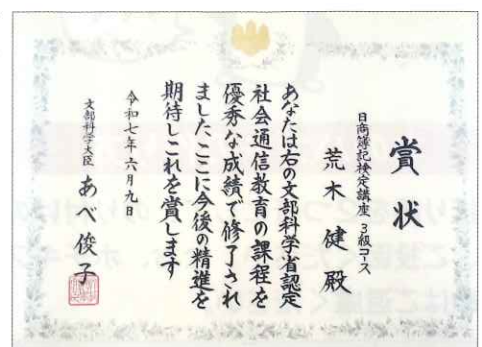 賞状
日商簿記検定講座 3級コース
荒木健殿
あなたは右の文部科学省認定
社会通信教育の課程を
優秀な成績で修了され
ましたここに今後の精進を
期待しこれを賞します
令和七年六月九日
文部科学大臣 あべ俊子